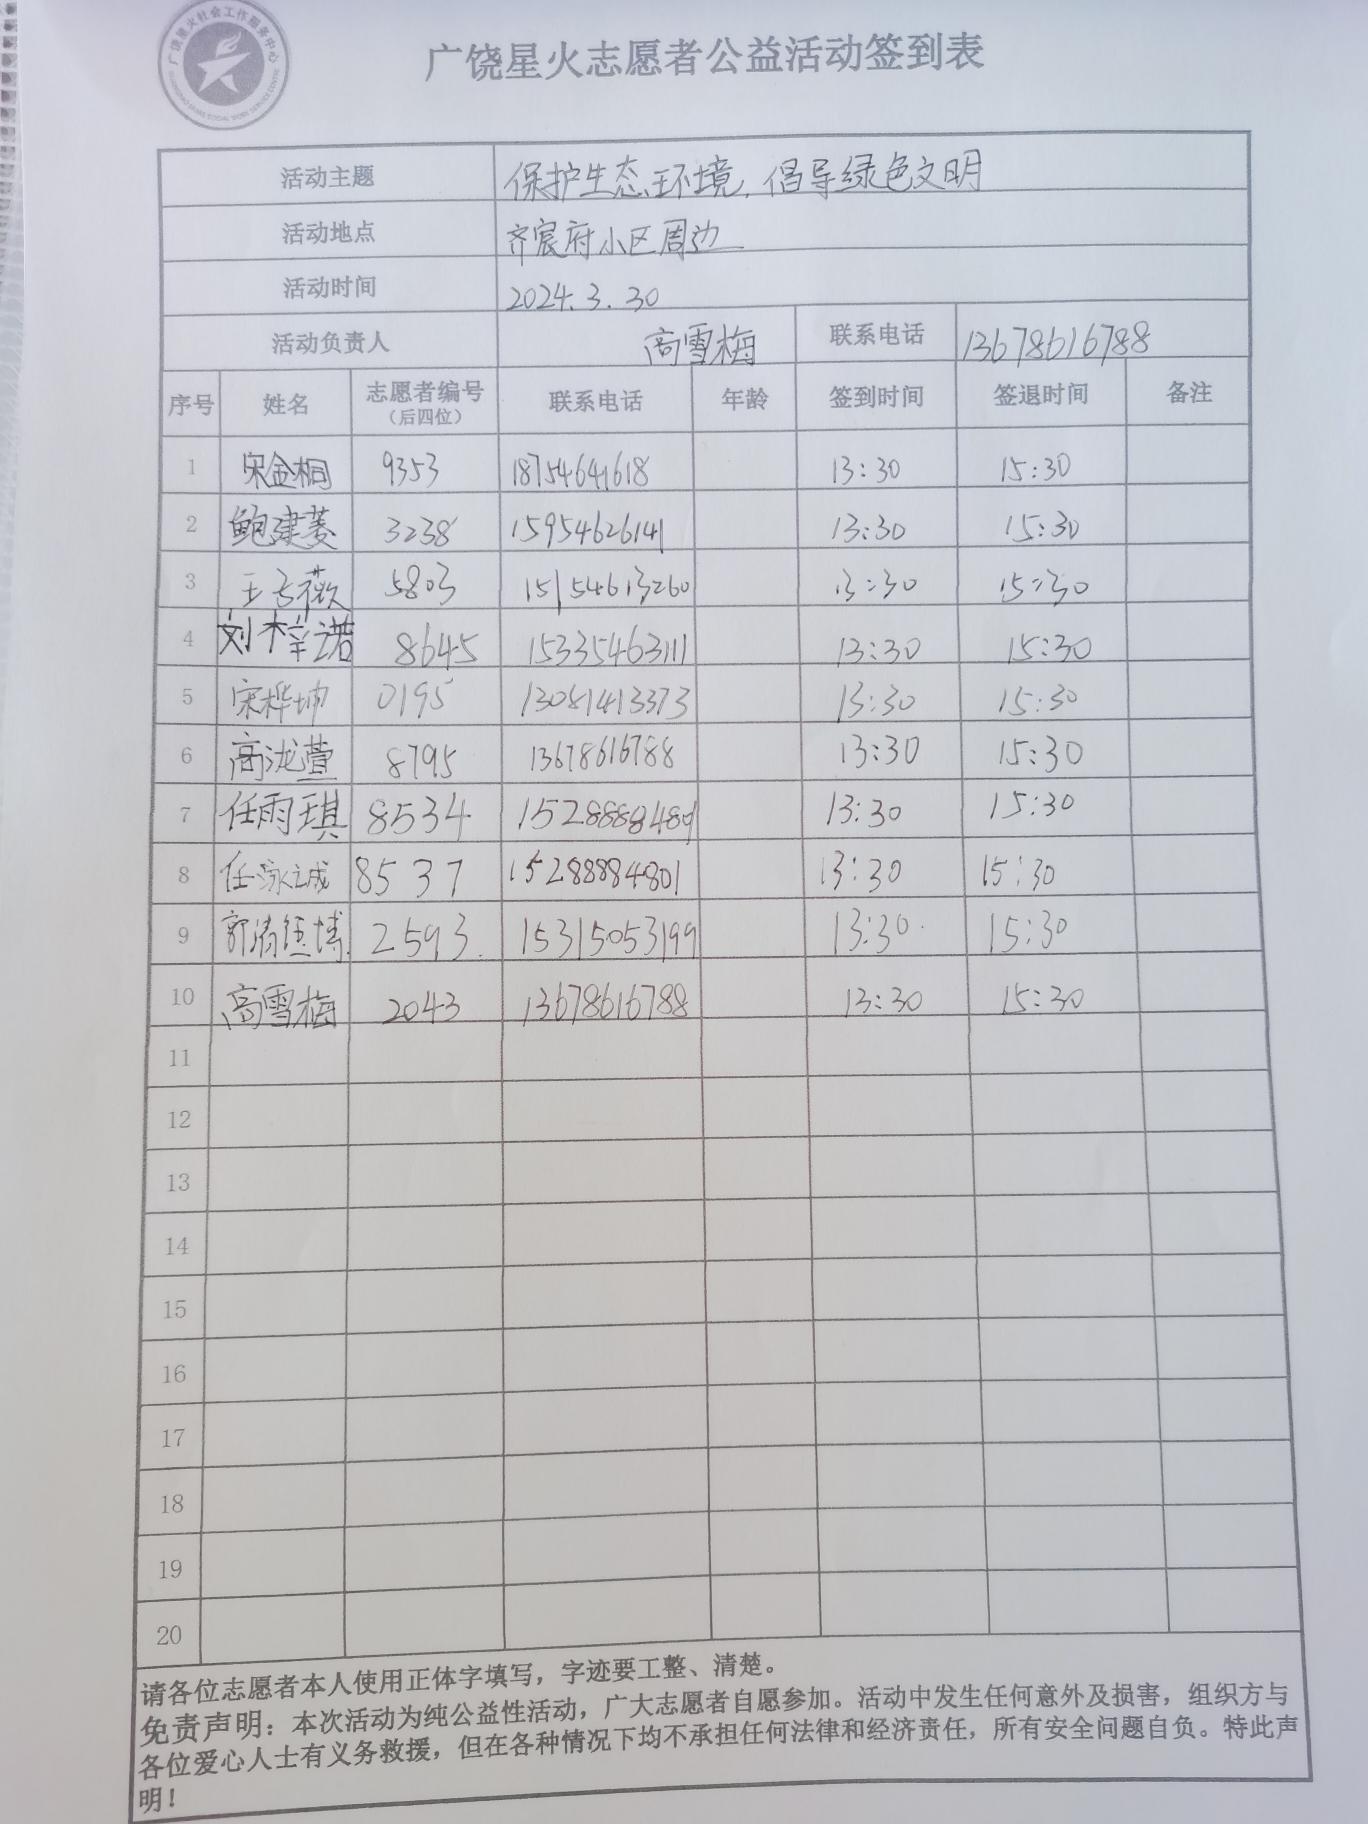 广饶星火社会工作服务中心
广饶星火志愿者公益活动签到表
活动主题 保护生态环境,倡导绿色文明
活动地点 齐宸府小区周边
活动时间 2024.3.30
活动负责人 高雪梅 联系电话 13678616788
序号 姓名 志愿者编号(后四位) 联系电话 年龄 签到时间 签退时间 备注
1 宋金桐 9353 18754641618 13:30 15:30
2 鲍建菱 3238 15954626141 13:30 15:30
3 王子薇 5803 15154613260 13:30 15:30
4 刘梓诺 8645 15335463111 13:30 15:30
5 宋桦坤 0195 13081413373 13:30 15:30
6 高泷萱 8795 13678616788 13:30 15:30
7 任雨琪 8534 15288884801 13:30 15:30
8 任泳诚 8537 15288884801 13:30 15:30
9 郭清 博 2593 15315053199 13:30 15:30
10 高雪梅 2043 13678616788 13:30 15:30
11
12
13
14
15
16
17
18
19
20
请各位志愿者本人使用正体字填写，字迹要工整、清楚。
免责声明：本次活动为纯公益性活动，广大志愿者自愿参加。活动中发生任何意外及损害，组织方与
各位爱心人士有义务救援，但在各种情况下均不承担任何法律和经济责任，所有安全问题自负。特此声
明！